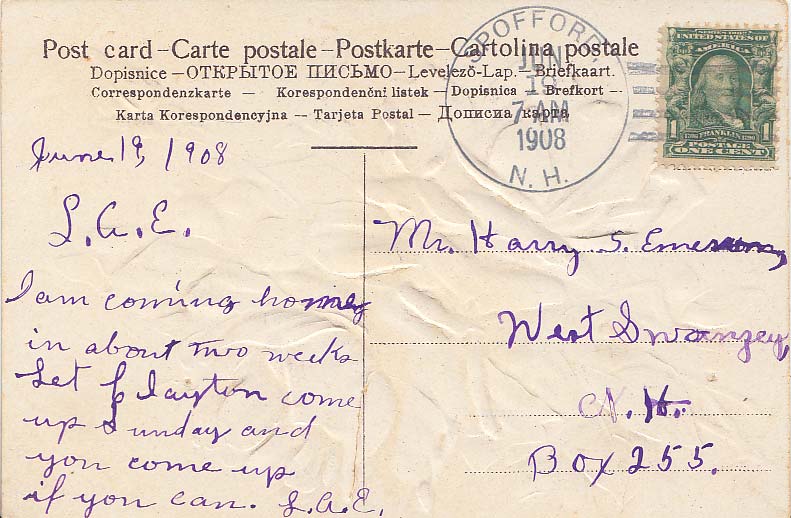 Post card – Carte postale – Postkarte – Cartolina postale
Dopisnice – ОТКРЫТОЕ ПИСЬМО – Levelező-Lap. – Briefkaart.
Correspondenzkarte – Korespondenční listek – Dopisnica – Brefkort –
Karta Korespondencyjna – Tarjeta Postal – Дописна карта
SPOFFORD,
JUN
19
7-AM
1908
N. H.
SERIES 1902
UNITED STATES OF
AMERICA
FRANKLIN
1 1
POSTAGE
ONE CENT
June 19, 1908
L.A.E.
I am coming home
in about two weeks
Let Clayton come
up Sunday and
you come up
if you can. L.A.E.
Mr. Harry S. Emerson,
West Swanzey,
N. H.
Box 255.